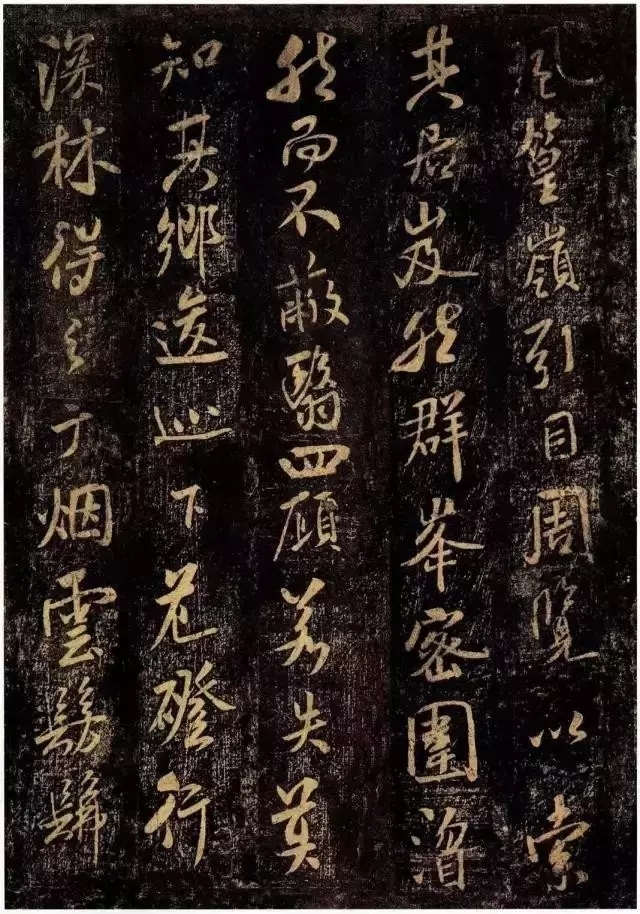 風篁嶺引目周覽以索
其居岌然群峯密圍溍
然而不蔽翳四顧若失莫
知其鄉逡巡下危磴行
深林得之于烟雲髣髴